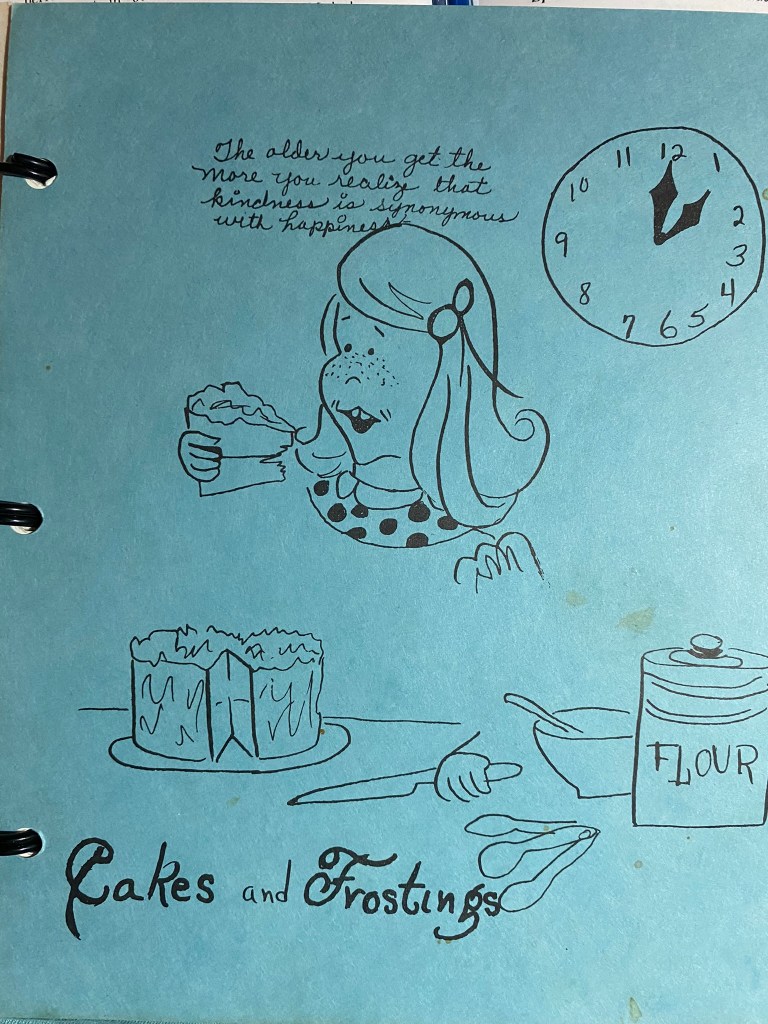 The older you get the
more you realize that
kindness is synonymous
with happiness
11 12 1
10 2
9 3
8 4
7 6 5
FLOUR
Cakes and Frostings